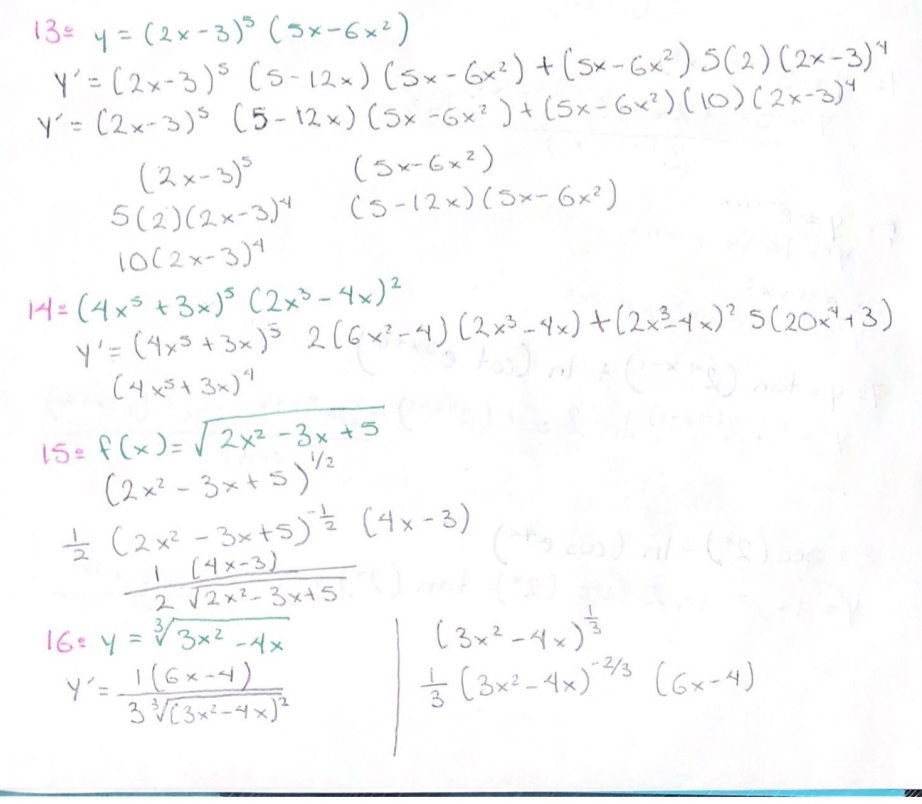 13: y = (2x-3)⁵ (5x-6x²)
y´= (2x-3)⁵ (5-12x) (5x-6x²) + (5x-6x²) 5(2) (2x-3)⁴
y´= (2x-3)⁵ (5-12x) (5x-6x²) + (5x-6x²) (10) (2x-3)⁴
(2x-3)⁵ (5x-6x²)
5(2)(2x-3)⁴ (5-12x)(5x-6x²)
10(2x-3)⁴
14: (4x⁵+3x)⁵ (2x³-4x)²
y'= (4x⁵+3x)⁵ 2(6x²-4) (2x³-4x) + (2x³-4x)² 5(20x⁴+3)
(4x⁵+3x)⁴
15: f(x)= √(2x²-3x+5)
(2x²-3x+5)^1/2
1/2 (2x²-3x+5)^-1/2 (4x-3)
1 (4x-3)
2 √(2x²-3x+5)
16: y = ∛(3x²-4x)
y´= 1(6x-4)
3 ∛(3x²-4x)²
(3x²-4x)^1/3
1/3 (3x²-4x)^-2/3 (6x-4)